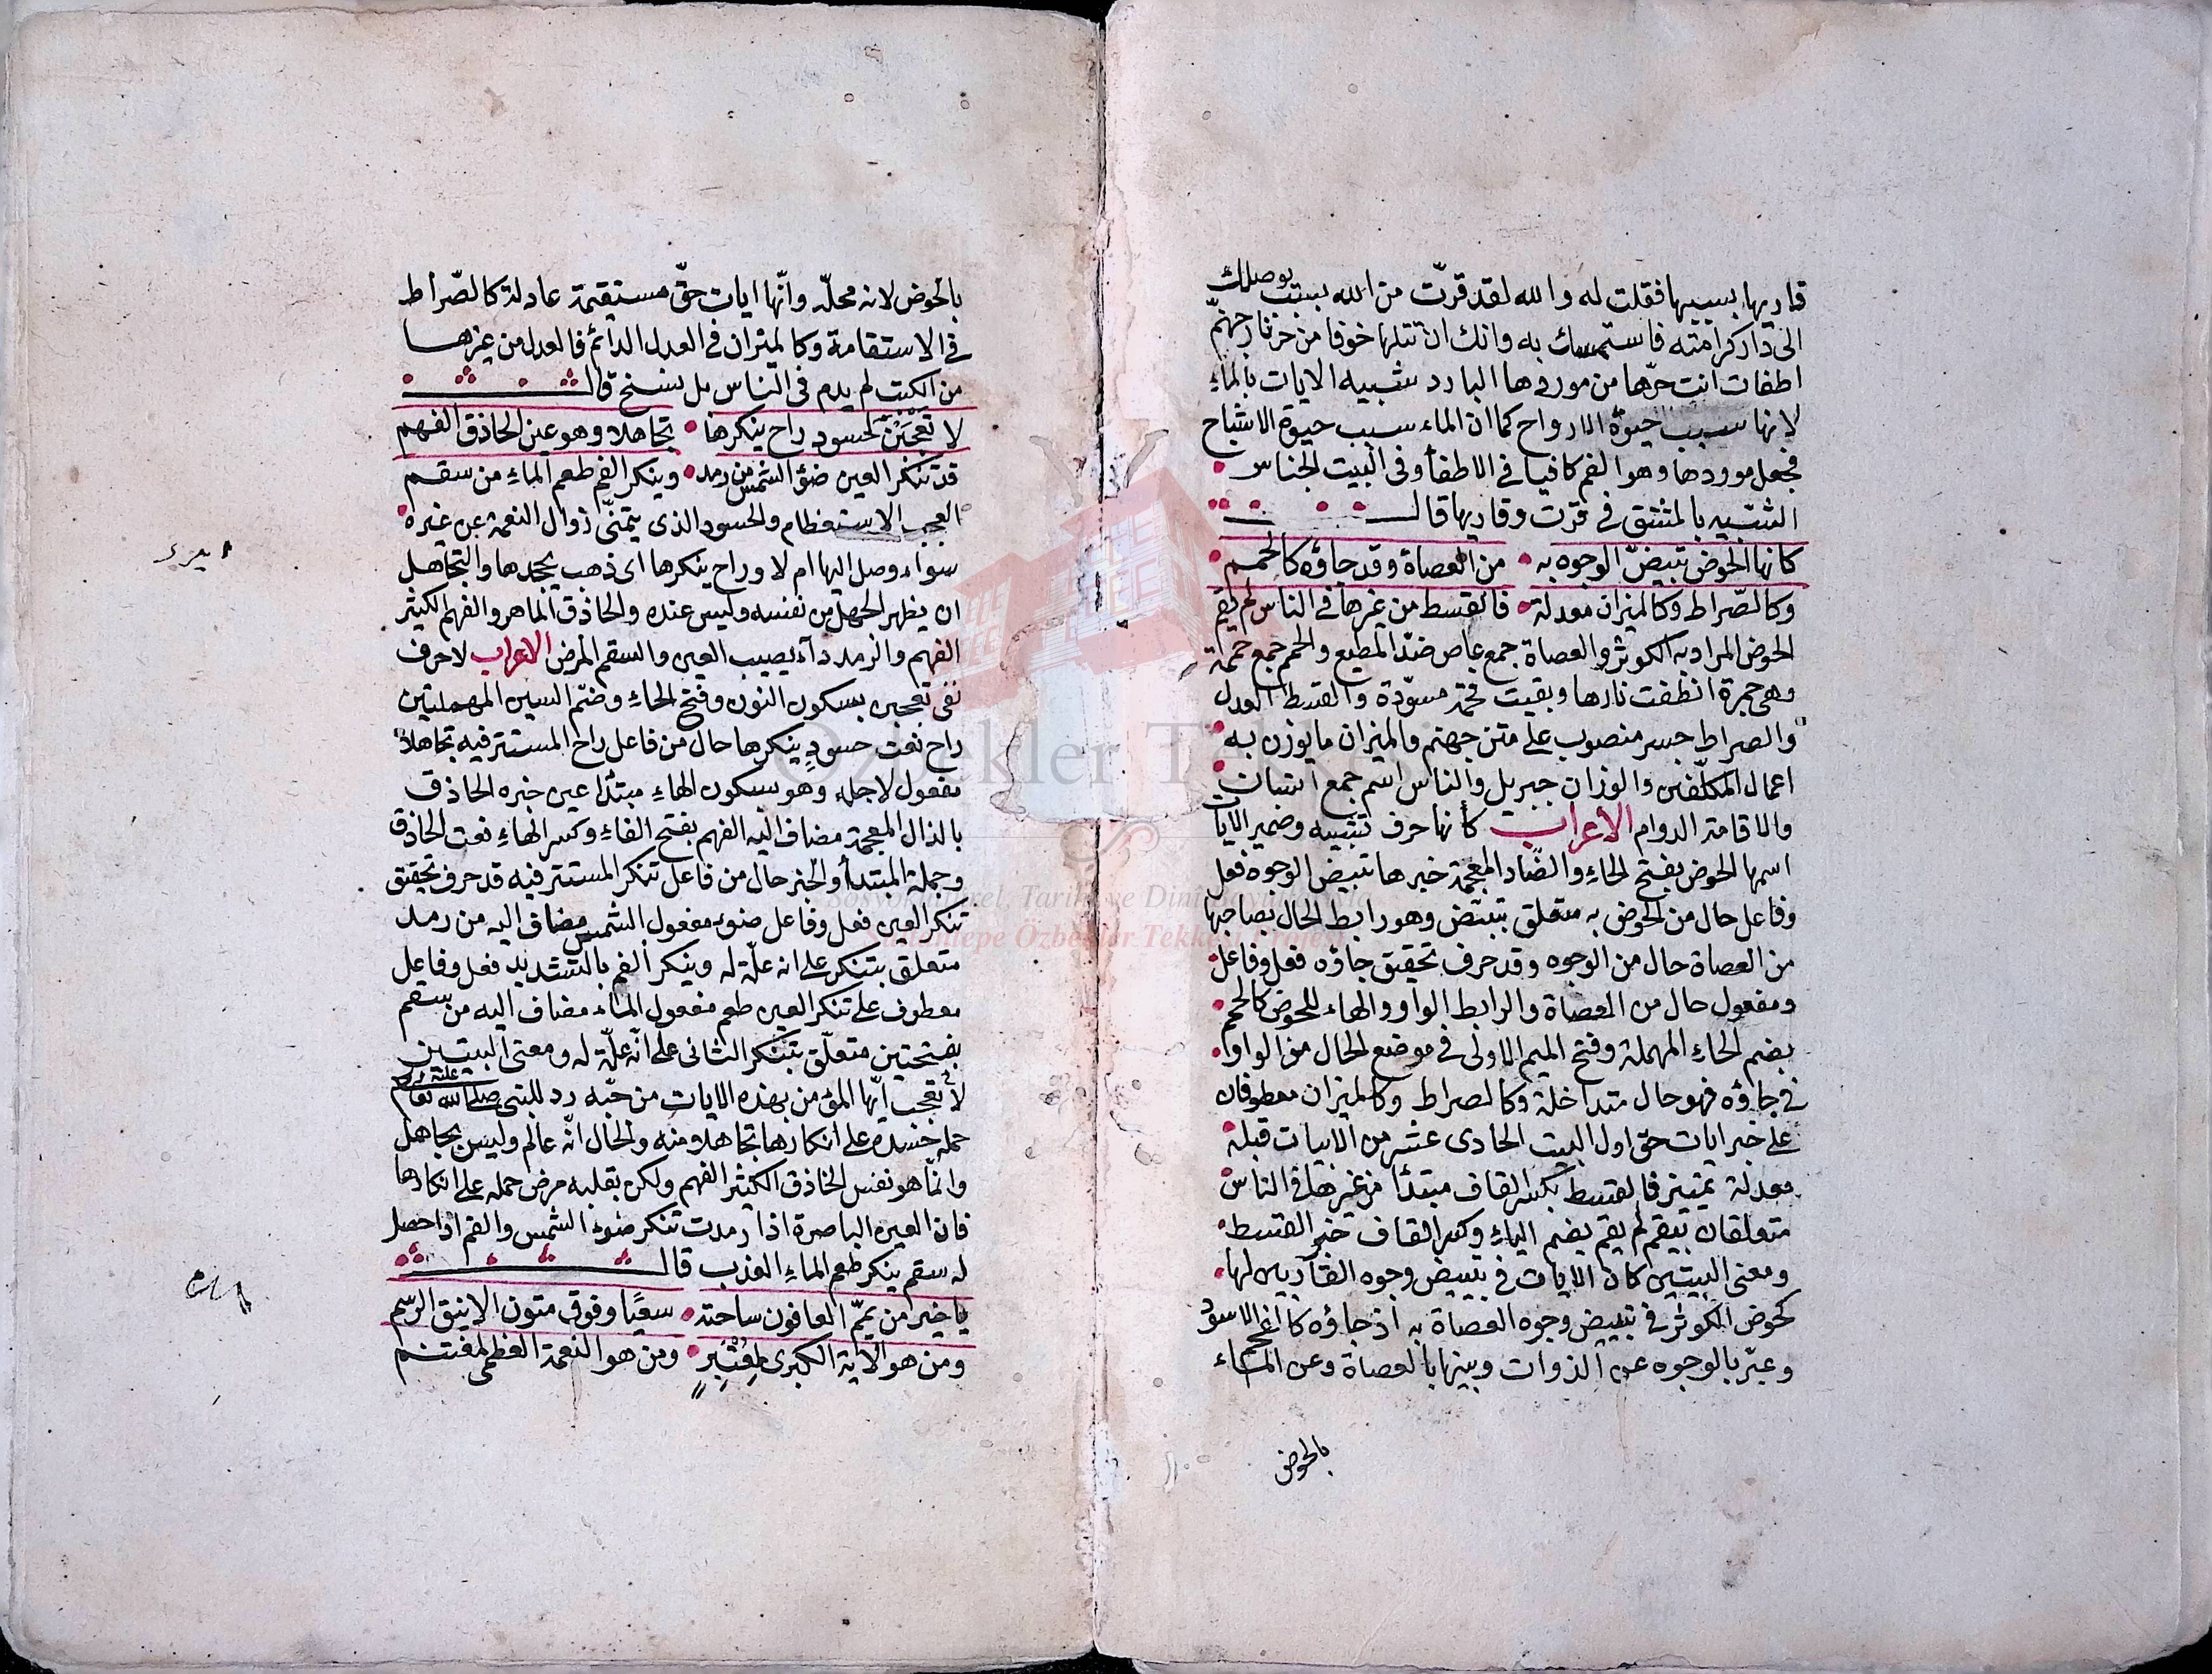 قاريها بسببها فقلت له والله لقد قرّت من الله بسبب يوصلك
الى دار كرامته فاستمسك به وانك ان تتلها خوفا من حر نار جهنّم
اطفات انت حرّها من موردها البارد شبيه الايات بالماءِ
لانها سبب حيوة الارواح كما ان الماء سبب حيوة الاشباح
فجعل موردها وهو الفم كافيا في الاطفأ وفى البيت الجناس
الشبيه بالمشتق في قرت وقاريها قال
كانها الحوض تبيضّ الوجوه به من العصاة وقد جاؤه كالحمم
وكالصّراط وكالميزان معدلة فالقسط من غيرها في الناس لم يقم
الحوض المراد به الكوثر والعصاة جمع عاص ضدّ المطيع والحمم جمع حممة
وهى جمرة انطفت نارها وبقيت فحمة مسوّدة والقسط العدل
والصراط جسر منصوب على متن جهنم والميزان ما يوزن به
اعمال المكلّفين والوزان جبريل والناس اسم جمع انسان
والاقامة الدوام الاعراب كأنها حرف تشبيه وضمير الايات
اسمها الحوض بفتح الحاءِ والضاد المعجمة خبرها تبيض الوجوه فعل
وفاعل حال من الحوض به متعلق بتبيض وهو رابط الحال بصاحبها
من العصاة حال من الوجوه وقد حرف تحقيق جاؤه فعل وفاعل
ومفعول حال من العصاة والرابط الواو والهاء للحوض كالحمم
بضم الحاءِ المهملة وفتح الميم الاولى في موضع الحال من الواو
في جاؤه فهو حال متداخلة وكالصراط وكالميزان معطوفان
على خبر ايات حق اول البيت الحادى عشر من الابيات قبله
معدلة تمييز فالقسط بكسر القاف مبتدأ من غيرها في الناس
متعلقان بيقم لم يقم بضم الياءِ وكسر القاف خبر القسط
ومعنى البيتين كان الايات في تبييض وجوه القآريين لها
كحوض الكوثر في تبييض وجوه العصاة به اذ جاؤه كالفحم الاسود
وعبّر بالوجوه عن الذوات وبينها بالعصاة وعن الماء
بالحوض
بالحوض لانه محلّه وانّها ايات حقّ مستقيمة عادلة كالصّراط
في الاستقامة وكالميزان في العدل الدائم فالعدل من غيرها
من الكتب لم يدم فى النّاس بل نسخ قال
لا تعجبن لحسود راح ينكرها تجاهلا وهو عين الحاذق الفهم
قد تنكر العين ضؤ الشمس من رمد وينكر الفم طعم الماءِ من سقم
العجب الاستعظام والحسود الذى يتمنّى زوال النعمة عن غيره
سواء وصل اليها ام لا وراح ينكرها اى ذهب يجحدها والتجاهل
ان يظهر الجهل من نفسه وليس عنده والحاذق الماهر والفهم الكثير
الفهم والرمد دآء يصيب العين والسقم المرض الاعراب لا حرف
نفى تعجبن بسكون النون وفتح الحاءِ وضمّ السين المهملتين
راح نعت حسودٍ ينكرها حال من فاعل راح المستتر فيه تجاهلا
مفعول لاجله وهو بسكون الهاءِ مبتدأ عين خبره الحاذق
بالذال المعجمة مضاف اليه الفهم بفتح الفاءِ وكسر الهاءِ نعت الحاذق
وجملة المبتدأ والخبر حال من فاعل تنكر المستتر فيه قد حرف تحقيق
تنكر العين فعل وفاعل ضوء مفعول الشمس مضاف اليه من رمد
متعلق بتنكر على انه علّة له وينكر الفم بالتشديد فعل وفاعل
معطوف على تنكر العين طعم مفعول الماء مضاف اليه من سقم
بفتحتين متعلّق بتنكر الثانى على انّه علّة له ومعنى البيتين
لا تعجب ايّها المؤمن بهذه الايات من حبّه رد للنبى صلى الله عليه وسلم
حمله حسده على انكارها تجاهلا منه والحال انّه عالم وليس بجاهل
وانّما هو نفس الحاذق الكثير الفهم ولكن بقلبه مرض حمله على انكارها
فان العين الباصرة اذا رمدت تنكر ضوء الشمس والفم اذا حصل
له سقم ينكر طعم الماءِ العذب قال
يا خير من يمّم العافون ساحته سعيًا وفوق متون الاينق الرسّم
ومن هو الآية الكبرى لمعتبر ومن هو النعمة العظمى لمغتنم
Özbekler Tekkesi
Sultantepe Özbekler Tekkesi Projesi